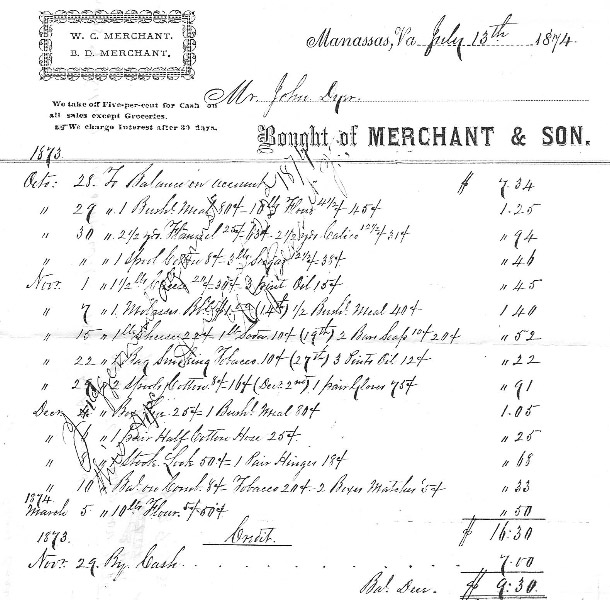 W. C. MERCHANT.
B. D. MERCHANT.
Manassas, Va. July 13th 1874
We take off Five-per-cent for Cash on
all sales except Groceries.
We charge Interest after 30 days.
Mr. John Dyer.
Bought of MERCHANT & SON.
1873
Octo: 28. To Balance on account $ 7.34
" 29 " 1 Bushl. Meal 80¢ - 10 lbs Flour 4½ 45¢ 1.25
" 30 " 2½ yds. Flannel 25¢ 63¢ - 2½ yds. Calico 12½ 31¢ " 94
" " " 1 Spool Cotton 8¢ 3 lbs Sugar 12½ 38¢ " 46
Nov: 1 " 1½ lbs 20¢ 30¢ 3 pint Oil 15¢ " 45
" 7 " 1 Molasses (14th) 1/2 Bushl. Meal 40¢ 1.40
" 15 " 1 lb Cheese 22¢ 1 lb Soda 10¢ (19th) 2 Bars Soap 10¢ 20¢ " 52
" 22 " Bag Smoking Tobacco 10¢ (27th) 3 Pints Oil 12¢ " 22
" 2 Spools Cotton 8¢ 16¢ (Dec 2nd) 1 pair Gloves 75¢ " 91
Decr 4 " Box 25¢ = 1 Bushl. Meal 80¢ 1.05
" " 1 pair Half Cotton Hose 25¢ " 25
" " Stock Lock 50¢ = 1 Pair Hinges 18¢ " 68
" 10 " Bal. on 8¢ Tobacco 20¢ - 2 Boxes Matches 5¢ " 33
1874
March 5 " 10 lbs Flour 5¢ 50¢ " 50
$ 16.30
1873. Credit.
Nov: 29. By Cash 7.00
Bal. Due. $ 9.30